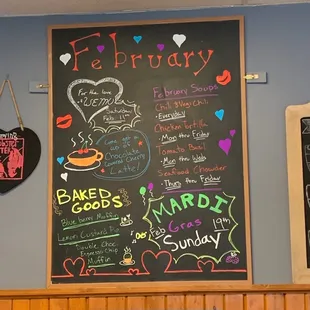 February
For the love
of
Saturday
Feb 11th
February Soups
Chili
Chili
Everyday
Chicken tortilla
Mon thru Friday
Tomato Basil
Mon thru Weds
Seafood Chowder
Thurs thru Friday
Come get
a cup of
Chocolate
Covered Cherry
Latte!
BAKED
GOODS
Blueberry Muffin
Lemon Custard
Double Choc
Espresso Chip
Muffin
MARDI
Gras
Feb 19th
Sunday